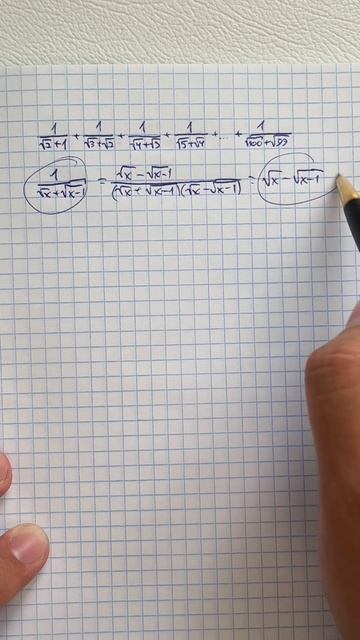 1/(√2+1) + 1/(√3+√2) + 1/(√4+√3) + 1/(√5+√4) + ... + 1/(√100+√99)
1/(√x+√x-1) = (√x-√x-1)/((√x+√x-1)(√x-√x-1)) = √x-√x-1